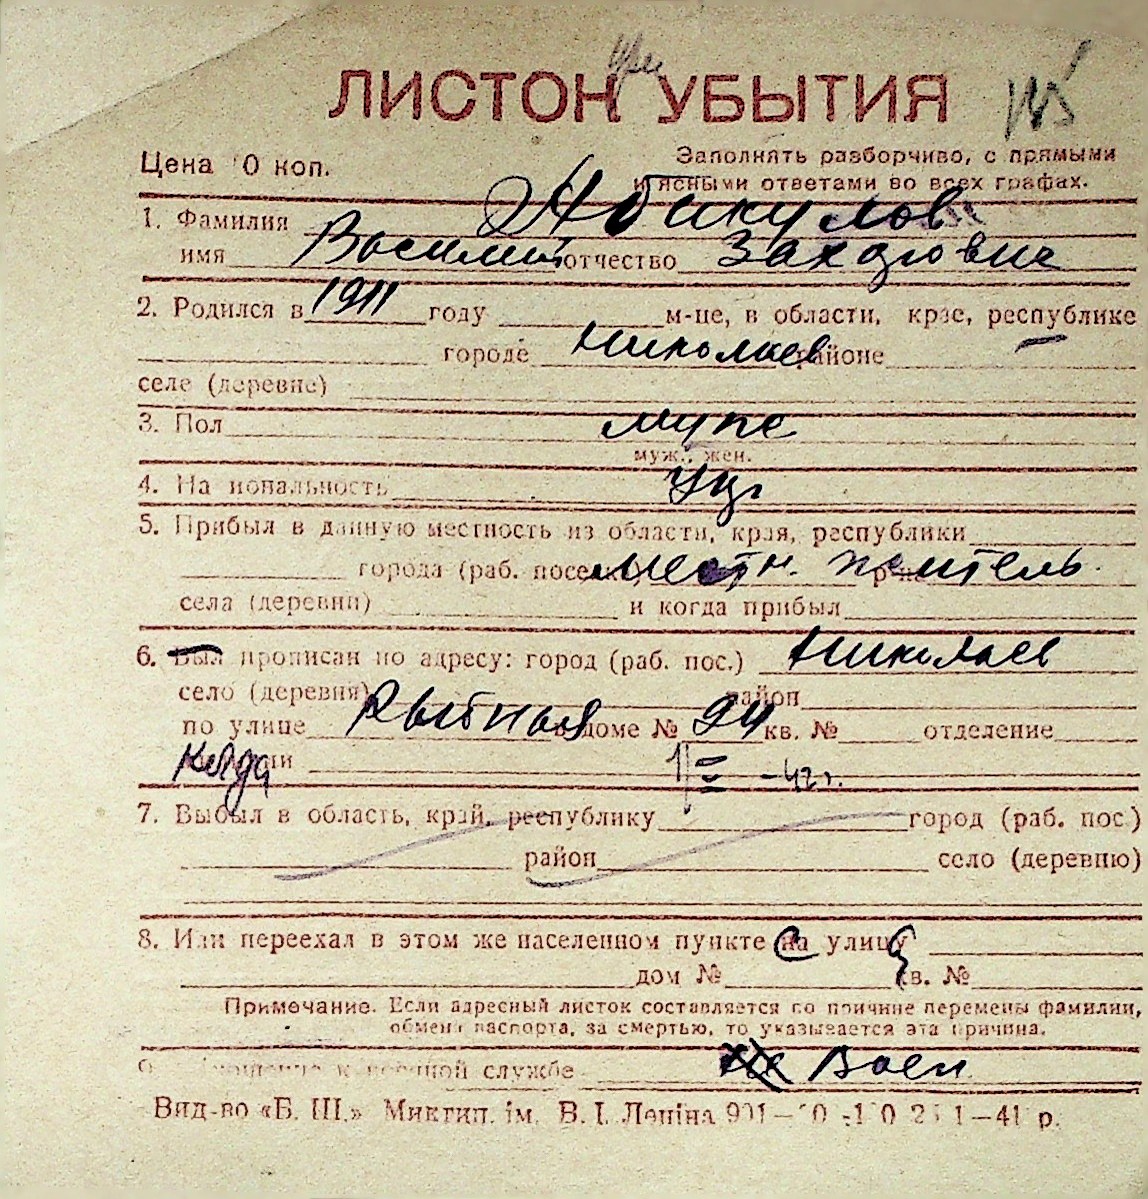 ЛИСТОК УБЫТИЯ
Цена 0 коп.
Заполнять разборчиво, с прямыми
и ясными ответами во всех графах.
1. Фамилия Абикулов
имя Василий отчество Захарович
2. Родился в 1911 году м-це, в области, крае, республике
городе Николаев районе
селе (деревне)
3. Пол муж
муж., жен.
4. На иональность
5. Прибыл в данную местность из области, края, республики
города (раб. поселка) местн. житель
села (деревни) и когда прибыл
6. Был прописан по адресу: город (раб. пос.) Николаев
село (деревня) район
по улице Рыбная доме № 24 кв. № отделение
когда 1/III -42 г.
7. Выбыл в область, край, республику город (раб. пос.)
район село (деревню)
8. Или переехал в этом же населенном пункте на улицу
дом № кв. №
Примечание. Если адресный листок составляется по причине перемены фамилии,
обмена паспорта, за смертью, то указывается эта причина.
к военной службе Воен
Вид-во «Б. Ш.» Миктип. ім. В. І. Леніна